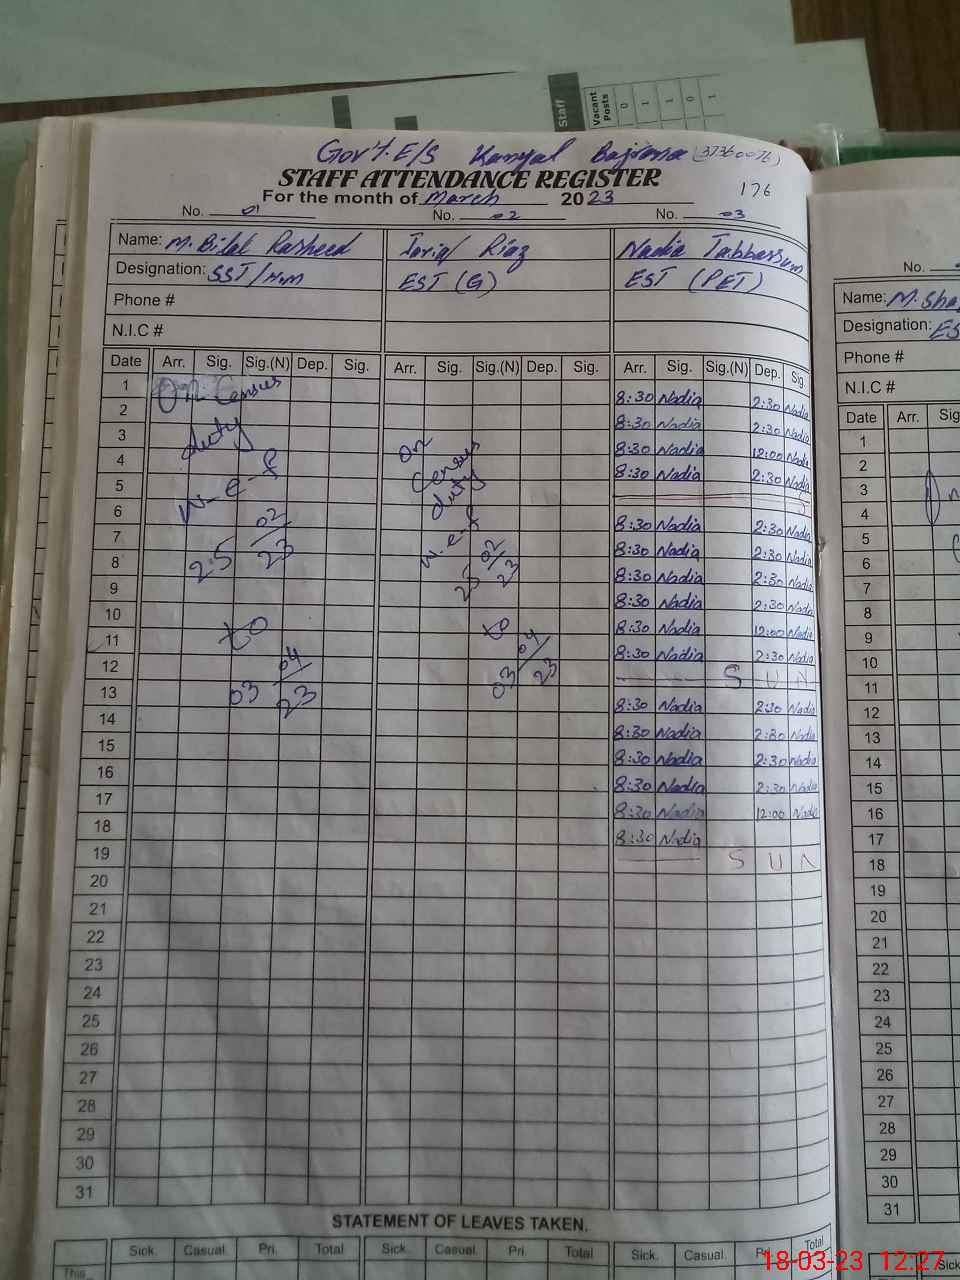 Staff
Vacant Posts
0
1
1
0
1
Gov't. E/S Kanyal Bajrana (37360076)
STAFF ATTENDANCE REGISTER
176
For the month of March 2023
No. 01 No. 02 No. 03
Name: M. Bilal Rasheed Riaz Nadia Tabbassum
Designation: SST/H.M EST (G) EST (PET)
Phone #
N.I.C #
Date Arr. Sig. Sig.(N) Dep. Sig. Arr. Sig. Sig.(N) Dep. Sig. Arr. Sig. Sig.(N) Dep. Sig
1 8:30 Nadia 2:30 Nadia
2 8:30 Nadia 2:30 Nadia
3 8:30 Nadia 12:00 Nadia
4 8:30 Nadia 2:30 Nadia
5
6 8:30 Nadia 2:30 Nadia
7 8:30 Nadia 2:30 Nadia
8 8:30 Nadia 2:30 Nadia
9 8:30 Nadia 2:30 Nadia
10 8:30 Nadia 12:00 Nadia
11 8:30 Nadia 2:30 Nadia
12 S U N
13 8:30 Nadia 2:30 Nadia
14 8:30 Nadia 2:30 Nadia
15 8:30 Nadia 2:30 Nadia
16 8:30 Nadia 2:30 Nadia
17 8:30 Nadia 12:00 Nadia
18 8:30 Nadia
19 S U N
20
21
22
23
24
25
26
27
28
29
30
31
On Census
duty
w-e-f
25 02/23
to
03 04/23
on
census
duty
w.e.f
25 02/23
to
03 04/23
STATEMENT OF LEAVES TAKEN.
Sick. Casual. Pri. Total Sick. Casual. Pri. Total Sick. Casual. Total
This
No.
Name: M. Sha
Designation: ES
Phone #
N.I.C #
Date Arr. Sig
1
2
3
4
5
6
7
8
9
10
11
12
13
14
15
16
17
18
19
20
21
22
23
24
25
26
27
28
29
30
31
Sick
18-03-23 12:27